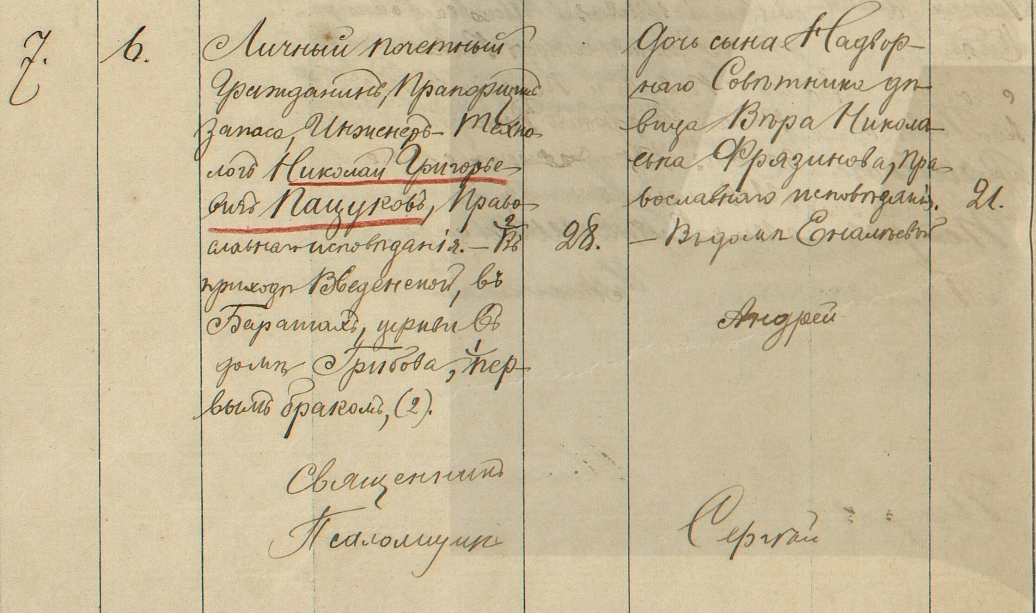 7.
6.
Личный почетный
Гражданинъ, Прапорщикъ
запаса, Инженеръ-Техно-
логъ Николай Григорье-
вичъ Пацуковъ, Право-
славнаго исповѣданія. – 2) Въ
приходѣ Введенской, въ
Барашахъ, церкви въ
домѣ Грибова, 1) пер-
вымъ бракомъ, (2).
28.
Дочь сына Надвор-
наго Совѣтника дѣ-
вица Вѣра Никола-
евна Фрязинова, пра-
вославнаго исповѣданія.
– Въ домѣ
21.
Священникъ
Андрей
Псаломщикъ
Сергѣй